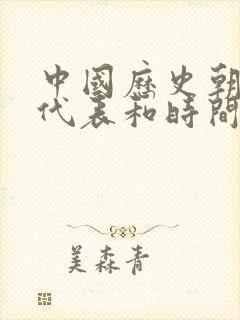 中國歷史朝
代表和時間
美森青